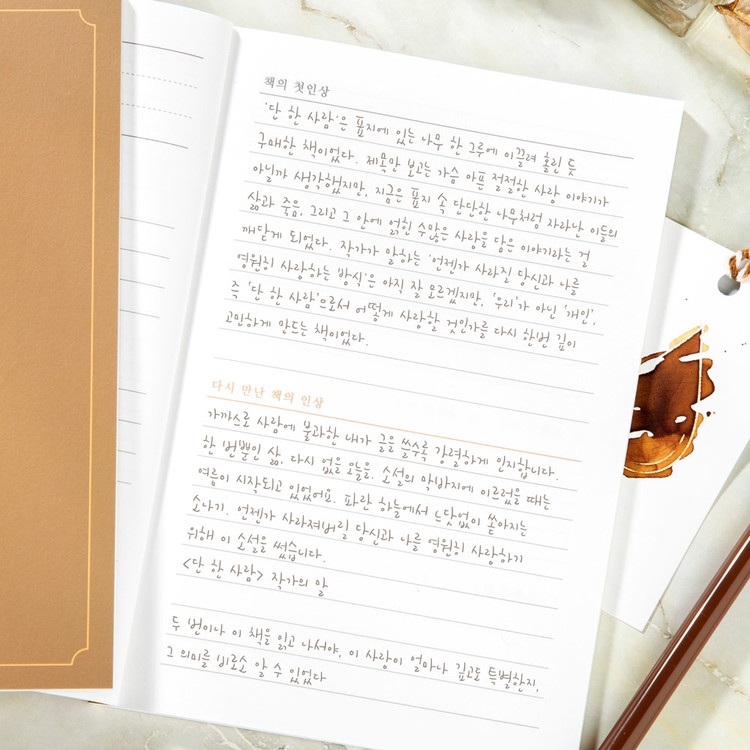 책의 첫인상
'단 한 사람'은 표지에 있는 나무 한 그루에 이끌려 홀린 듯
구매한 책이었다. 제목만 보고는 가슴 아픈 절절한 사랑 이야기가
아닐까 생각했지만, 지금은 표지 속 단단한 나무처럼 자라난 이들의
삶과 죽음, 그리고 그 안에 얽힌 수많은 사람을 담은 이야기라는 걸
깨닫게 되었다. 작가가 말하는 '언젠가 사라질 당신과 나를
영원히 사랑하는 방식'은 아직 잘 모르겠지만, '우리'가 아닌 '개인',
즉 '단 한 사람'으로서 어떻게 사랑할 것인가를 다시 한번 깊이
고민하게 만드는 책이었다.
다시 만난 책의 인상
가까스로 사람에 불과한 내가 글을 쓸수록 강렬하게 인지합니다.
한 번뿐인 삶, 다시 없을 오늘을. 소설의 막바지에 이르렀을 때는
여름이 시작되고 있었어요. 파란 하늘에서 느닷없이 쏟아지는
소나기. 언젠가 사라져버릴 당신과 나를 영원히 사랑하기
위해 이 소설을 썼습니다.
<단 한 사람> 작가의 말
두 번이나 이 책을 읽고 나서야, 이 사랑이 얼마나 깊고도 특별한지,
그 의미를 비로소 알 수 있었다